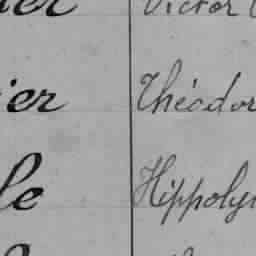 Victor
er Théodor
le Hippoly